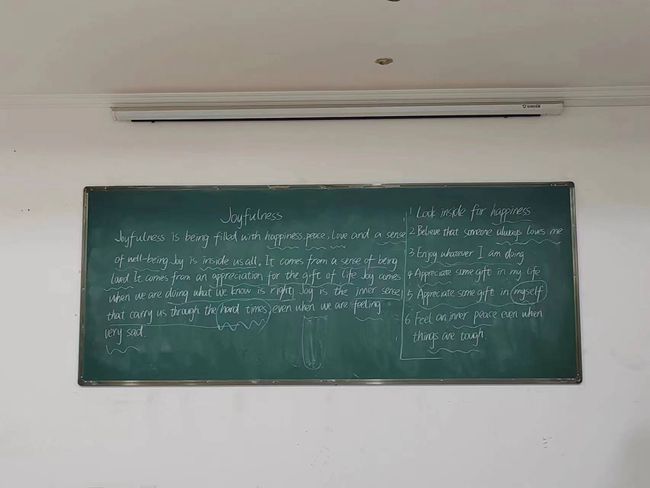 Joyfulness
Joyfulness is being filled with happiness, peace, love and a sense
of well-being. Joy is inside us all. It comes from a sense of being
loved. It comes from an appreciation for the gift of life. Joy comes
when we are doing what we know is right. Joy is the inner sense
that carry us through the hard times, even when we are feeling
very sad.
1 Look inside for happiness
2 Believe that someone always loves me
3 Enjoy whatever I am doing
4 Appreciate some gift in my life
5 Appreciate some gift in myself
6 Feel an inner peace even when
things are tough